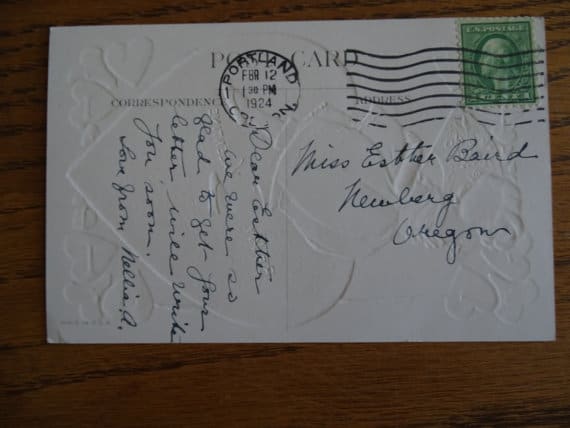 POST CARD
CORRESPONDENCE
ADDRESS
PORTLAND
FEB 12
30 PM
1924
U.S. POSTAGE
Dear Esther
we were so
glad to get your
letter will write
you soon.
Love from Nellie A.
Miss Esther Baird
Newberg
Oregon